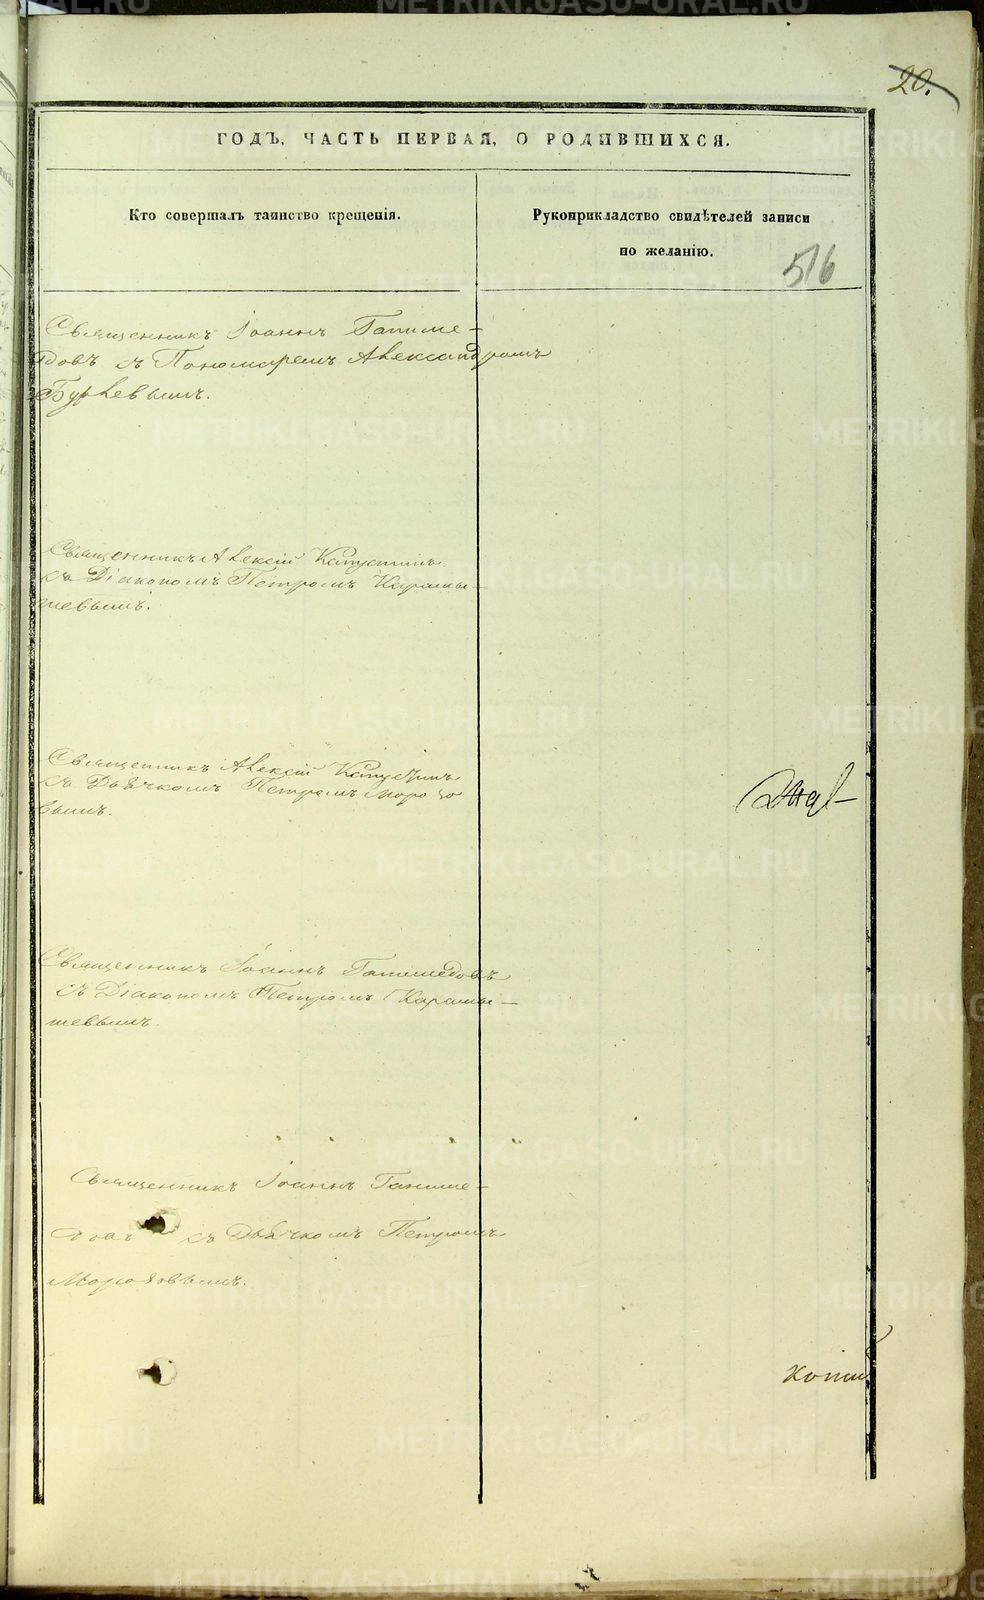 20.
ГОДЪ, ЧАСТЬ ПЕРВАЯ, О РОДИВШИХСЯ.
Кто совершалъ таинство крещенія.
Рукоприкладство свидѣтелей записи
по желанію.
516
Священникъ Іоаннъ Ганиме-
довъ съ Пономаремъ Александромъ
Священникъ Алексій Капустинъ
съ Діакономъ Петромъ Карамы-
шевымъ.
Священникъ Алексій Капустинъ
съ Дьячкомъ Петромъ Морозо
вымъ.
Священникъ Іоаннъ Ганимедовъ
съ Діакономъ Петромъ Карамы-
шевымъ.
Священникъ Іоаннъ Ганиме-
довъ съ Дьячкомъ Петромъ
Морозовымъ.
METRIKI.GASO-URAL.RU